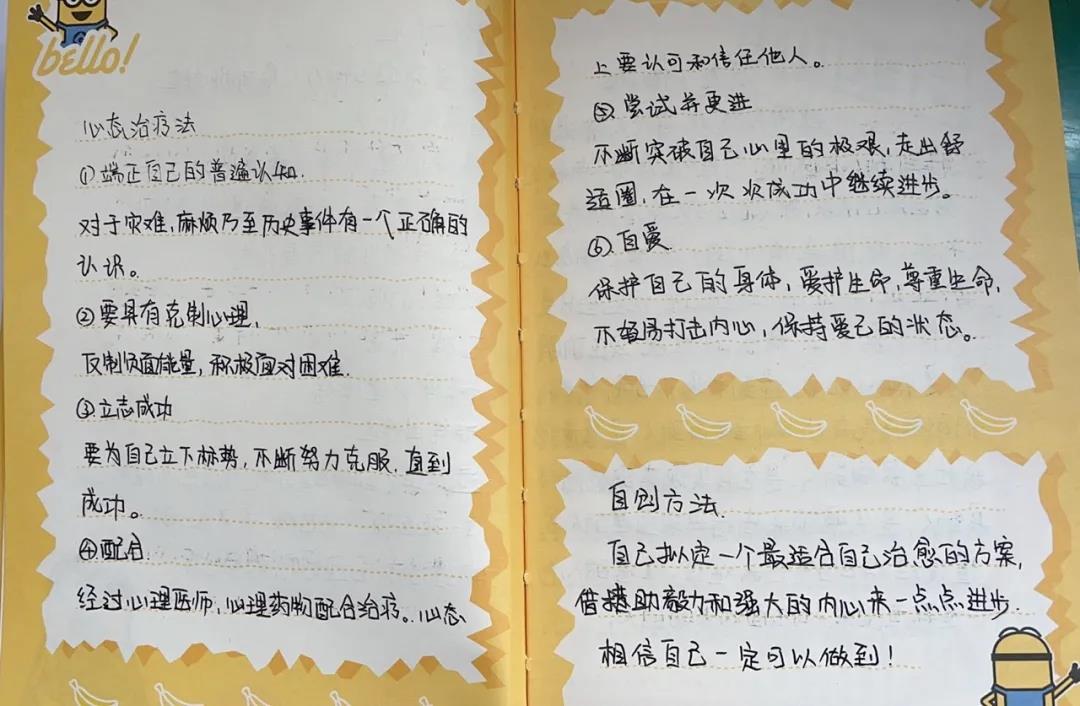 bello!
心态治疗法
①端正自己的普遍认知.
对于灾难,麻烦乃至历史事件有一个正确的
认识。
②要具有克制心理,
反制负面能量,积极面对困难.
③立志成功
要为自己立下标势,不断努力克服.直到
成功。
④配合.
经过心理医师,心理药物配合治疗。心态
上要认可和信任他人。
⑤尝试并更进
不断突破自己心里的极艰,走出舒
适圈,在一次次成功中继续进步。
⑥自爱
保护自己的身体,爱护生命,尊重生命,
不轻易打击内心,保持爱己的状态。
自创方法.
自己拟定一个最适合自己治愈的方案,
借助毅力和强大的内心来一点点进步.
相信自己一定可以做到!